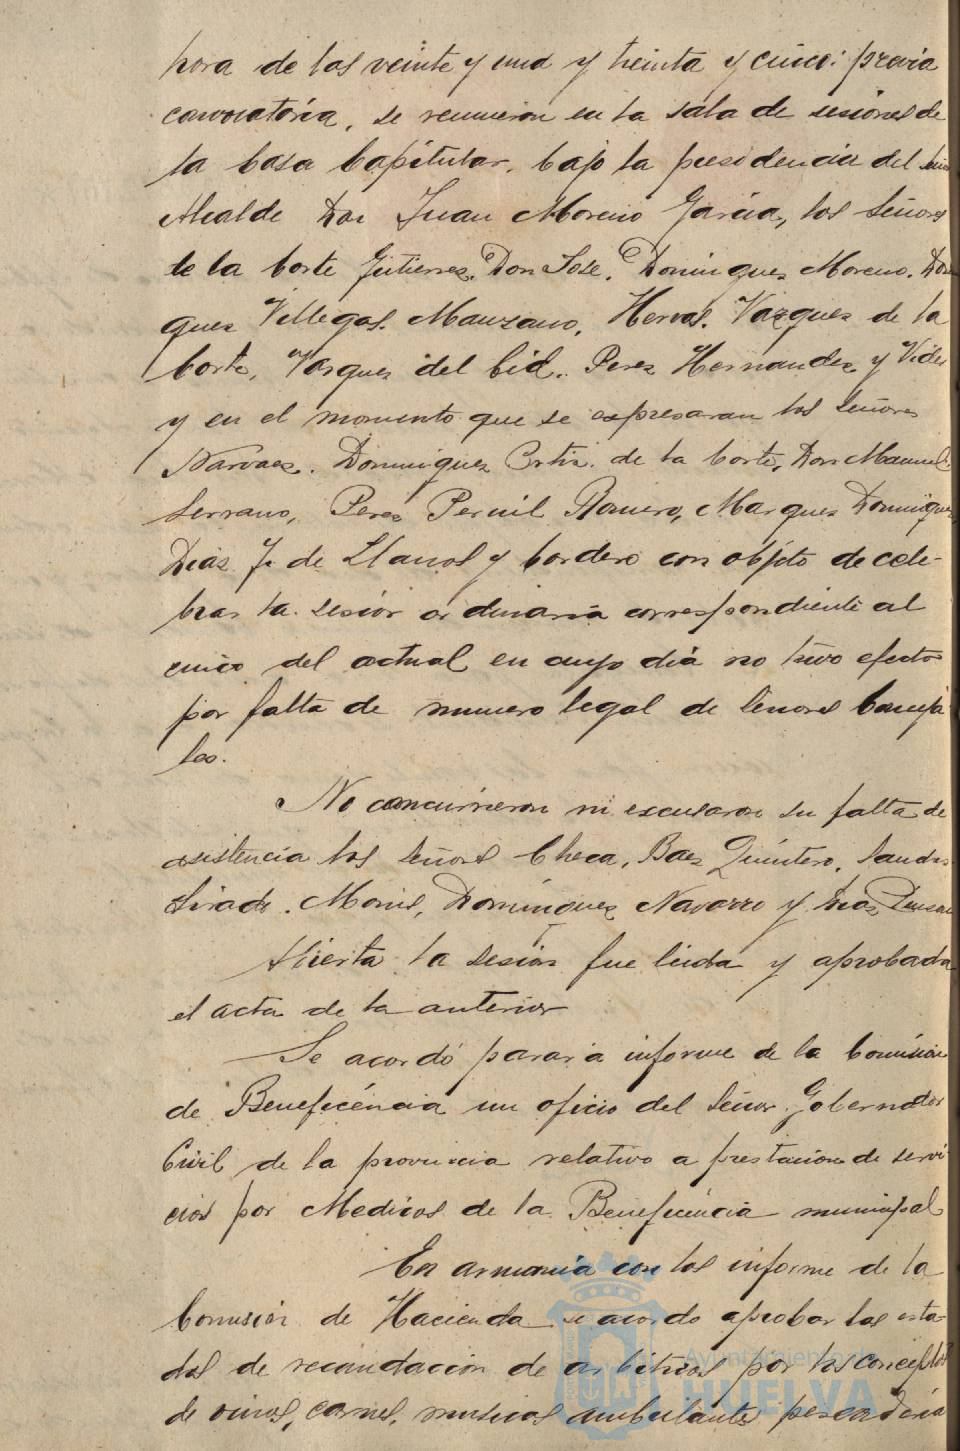 hora de las veinte y una y treinta y cinco: previa
convocatoria, se reunieron en la sala de sesiones de
la Casa Capitular, bajo la presidencia del Señor
Alcalde Don Juan Moreno García, los Señores
de la Corte Gutierrez, Don Jose, Dominguez Moreno,
guez Villegas, Manzano, Hervas, Vazquez de la
Corte, Vazquez del Cid, Perez Hernandez y Vides
y en el momento que se expresaran los Señores
Narvaez, Dominguez Ortiz, de la Corte, Don Manuel,
Serrano, Perez Pernil Romero, Marquez Dominguez,
Dias J. de Llanos y Cordero con objeto de cele-
brar la sesión ordinaria correspondiente al
cinco del actual en cuyo dia no tuvo efecto
por falta de numero legal de Señores Conceja
les.
No concurrieron ni escusaron su falta de
asistencia los Señores Checa, Baez Quintero,
Tirado, Dominguez Navarro y
Abierta la sesion fue leida y aprobada
el acta de la anterior
Se acordó parar a informe de la Comisión
de Beneficéncia un oficio del Señor Gobernador
Civil de la provincia relativo a prestacion de servi
cios por Medicos de la Beneficéncia municipal
En armonia con los informe de la
Comision de Hacienda se acordo aprobar los esta-
dos de recaudación de arbitrios por los conceptos
de vinos, carnes, musicos ambulantes pescaderia
Ayuntamiento de
HUELVA